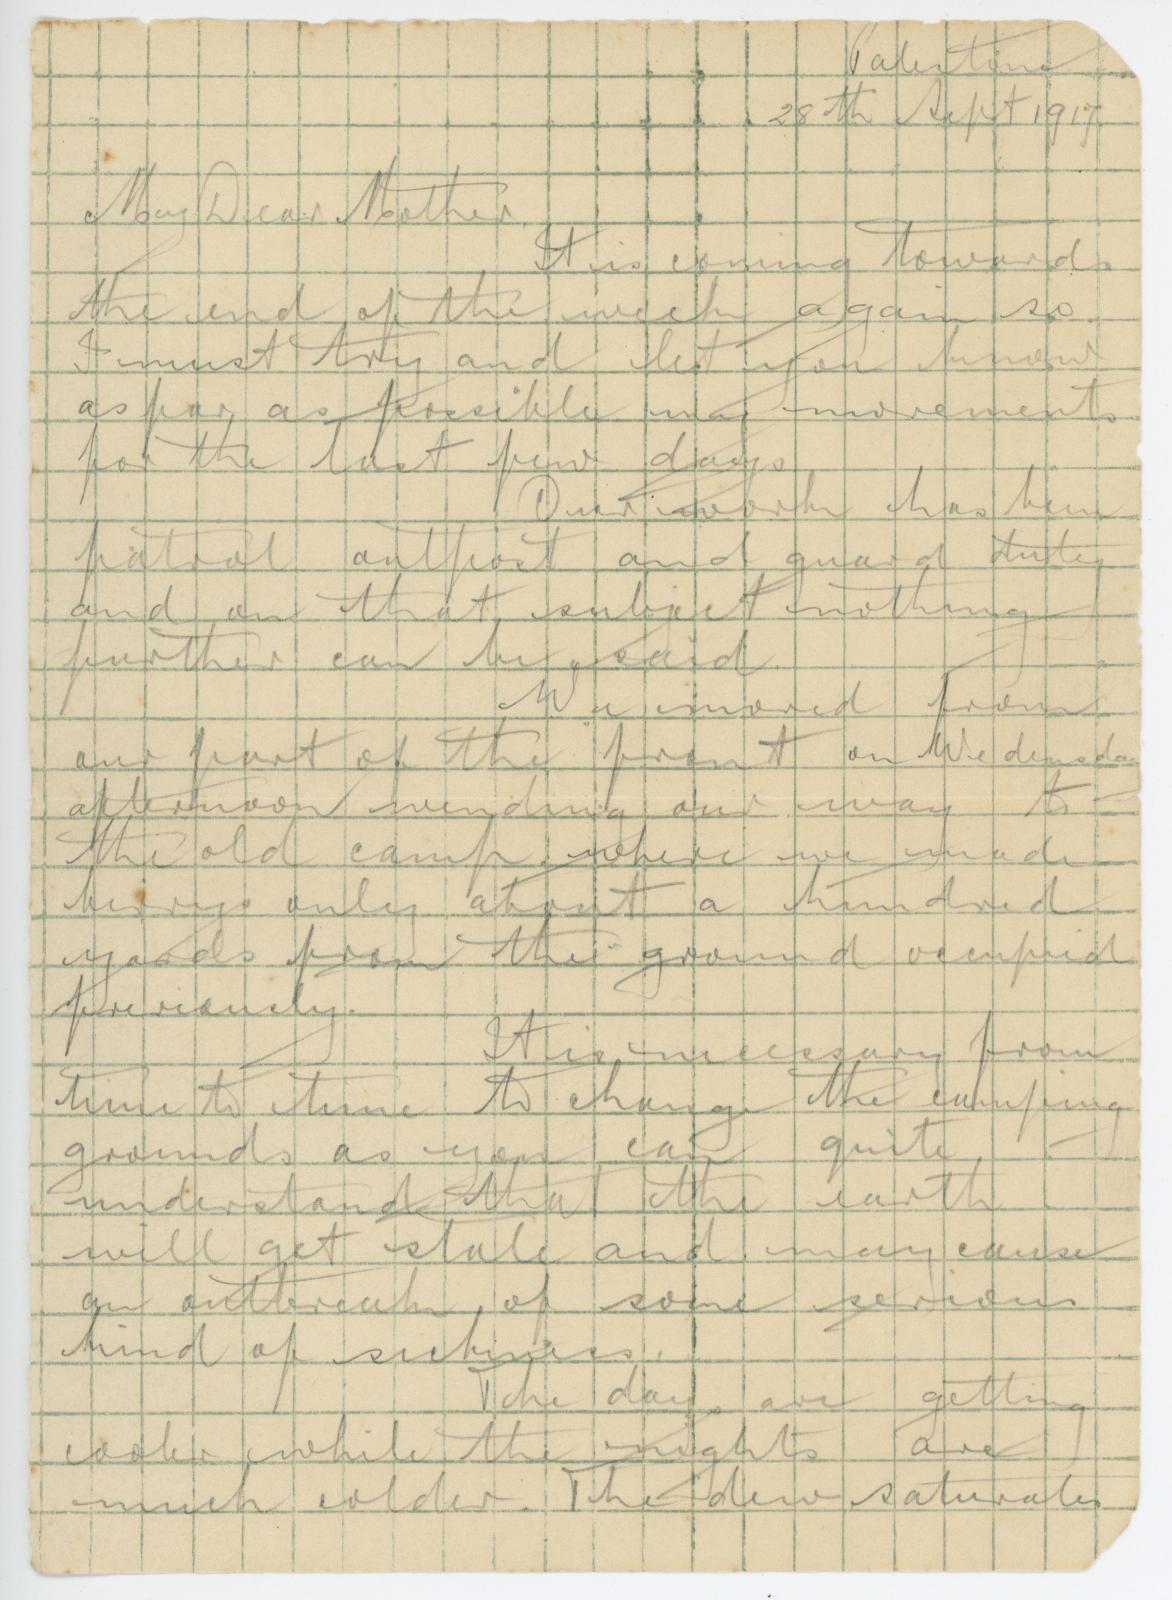 Palestine
28th Sept 1917.
My Dear Mother,
It is coming towards
the end of the week again so
I must try and let you know
as far as possible my movements
for the last few days
Our work has been
patrol outpost and guard duty
and on that subject nothing
further can be said.
We moved from
our part of the front on Wedensday
afternoon wending our way to
the old camp where we made
bivvys only about a hundred
yards from the ground occupied
previously.
It is necessary from
time to time to change the camping
grounds as you can quite
understand that the earth
will get stale and may cause
an outbreak of some serious
kind of sickness.
The days are getting
cooler while the nights are
much colder. The dew saturates